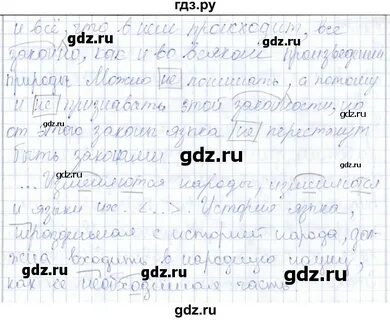 гдз.ру
и всё, что в нём происходит, все
законно, как и во всяком произведении
природы. Можно не понимать, а потому
и не признавать этой законности, но
от этого законы языка не перестанут
быть законами.
... Изменяются народы, изменяются
и языки их. <...> История языка,
нераздельная с историей народа, дол-
жна входить в народную науку,
как её необходимая часть.
gdz.ru
gdz.ru
gdz.ru
gdz.ru
gdz.ru
gdz.ru
gdz.ru
gdz.ru
gdz.ru